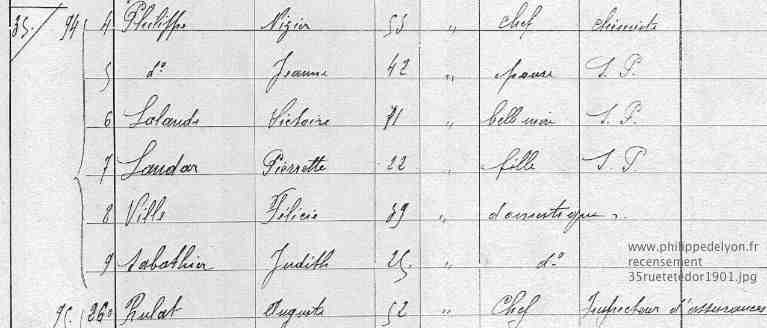 35. 94 4 Philippe Nizier 53 " chef chimiste
5 d° Jeanne 42 " épouse S. P.
6 Lalande Victoire 71 " belle mère S. P.
7 Landar Pierrette 22 " fille S. P
8 Ville Félicie 39 " domestique
9 Sabathier Judith 25 " d°
95. 260 Rulat Auguste 52 " Chef Inspecteur d'assurances
www.philippedelyon.fr
recensement
35ruetetedor1901.jpg